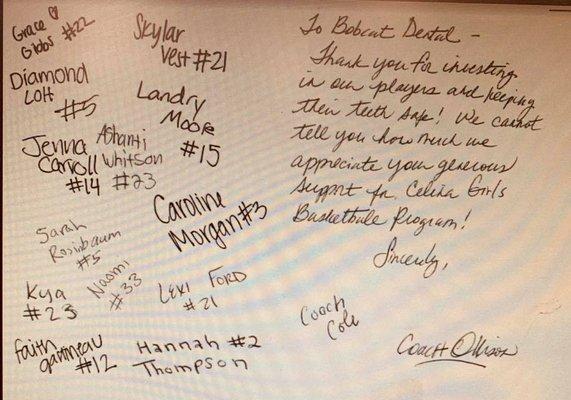 Grace
Gibbs #22
Skylar
Vest #21
Diamond
Lott
#5
Landry
Moore
#15
Jenna
Carroll
#14
Ashanti
Whitson
#23
Caroline
Morgan #3
Sarah
Rosinbaum
#5
Naomi
#33
Kya
#23
Lexi Ford
#21
Faith
#12
Hannah #2
Thompson
To Bobcat Dental -
Thank you for investing
in our players and keeping
their teeth safe! We cannot
tell you how much we
appreciate your generous
support for Celina Girls
Basketball Program!
Sincerely,
Coach
Cole
Coach Ollison